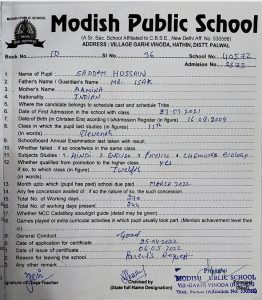 MODISH PUBLIC SCHOOL
Modish Public School
(A Sr. Sec. School Affiliated to C.B.S.E., New Delhi Aff No. 530588)
ADDRESS : VILLAGE GARHI VINODA, HATHIN, DISTT. PALWAL
Book No. 10 Sl No. 36 School No. 40572
Admission No.
1. Name of Pupil SADDAM HUSSAIN
2. Father's Name / Guardian's Name MR. ISAK
3. Mother's Name AAMINA
4. Nationality INDIAN
5. Where the candidate belongs to schedule cast and schedule Tribe
6. Date of First Admission in the school with class 27.07.2021
7. Date of Birth (in Christian Era) according Admission Register (in figure) 16.09.2004
8. Class in which the pupil last studies (in figures) 11th
(in words) Eleventh
9. School/board Annual Examination last taken with result
10. Whether failed, if so once/twice in the same class
11. Subjects Studies : HINDI, ENGLISH, PHYSICS, CHEMISTRY, BIOLOGY
12. Whether qualified from promotion to the higher class YES
If so, to which class (in figure) Twelfth
(in words)
13. Month upto which (pupil has paid) school due paid MARCH 2022
14. Any fee concession availed of : if so the nature of the such concession
15. Total No. of Working days 270
16. Total No. of working days present 224
17. Whether NCC Cadet/boy scout/girl guide (detail may be given)
18. Games played or extra curricular activities in which pupil usually took part. (Mention achievement level there
in)
19. General Conduct Good
20. Date of application for certificate 25.04.2022
21. Date of issue of certificate 06.05.2022
22. Reason for leaving the school Parent's Request
23. Any other remarks
Signature of Class Teacher
Checked by
(State full Name Designation)
Principal
MODISH PUBLIC SCHOOL
Vill-GARHI VINODA (HATHIN)